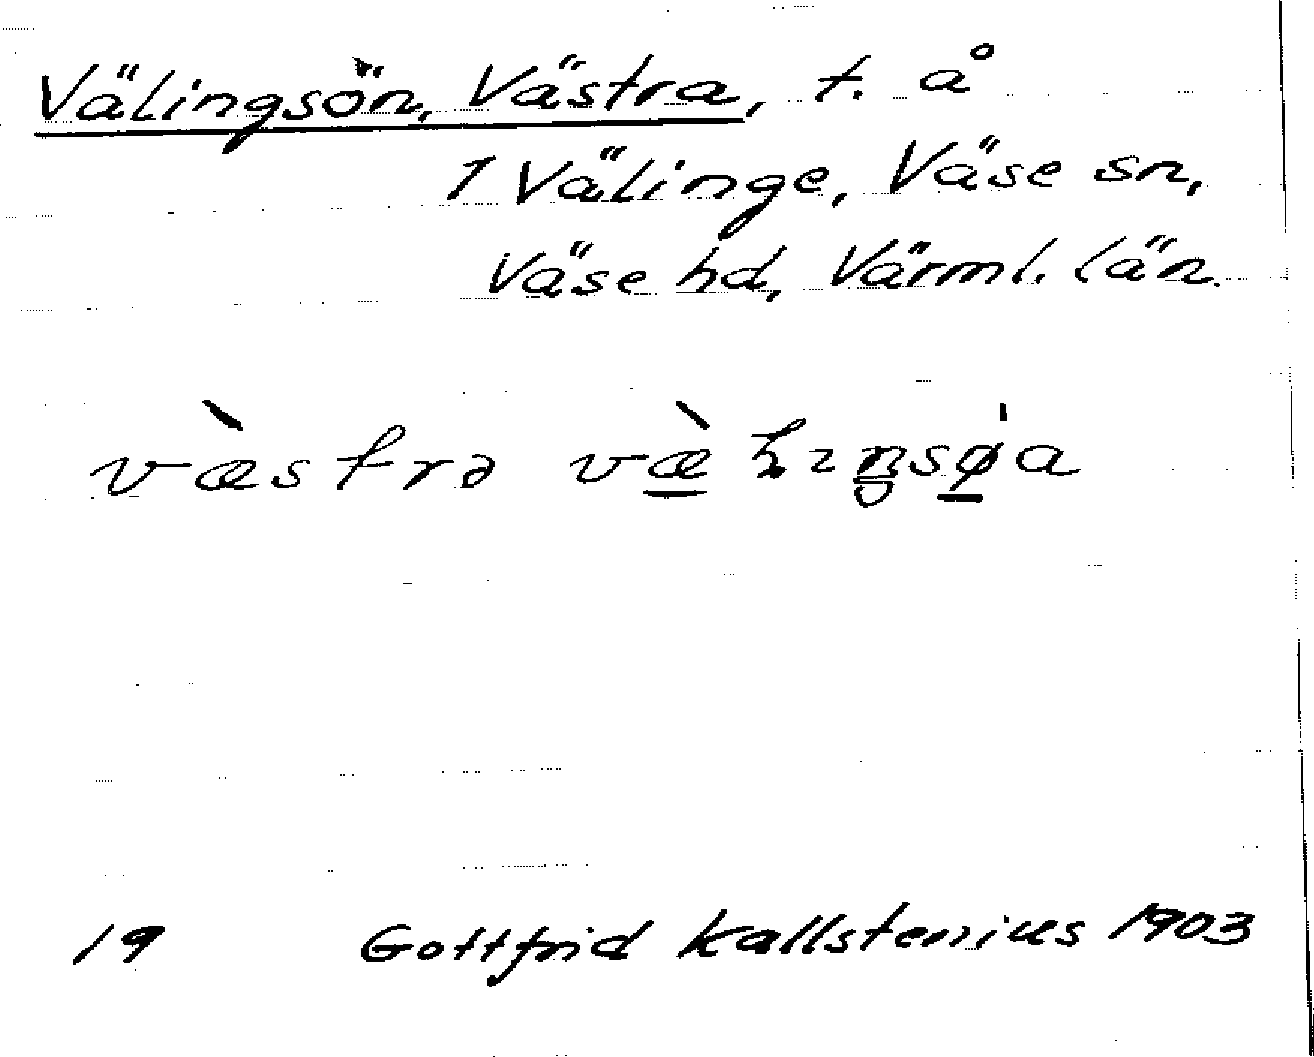 Välingsön, Västra, t. å
1 Välinge, Väse sn,
Väse hd, Värml. län.
væ̀strə væ̠̀ɽɪŋsø̠̍a
19 Gottfrid Kallstenius 1903